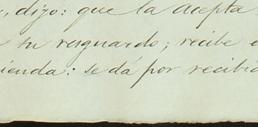 , dijo: que la acepta
su resguardo; recibe e
ienda: se dá por recibid